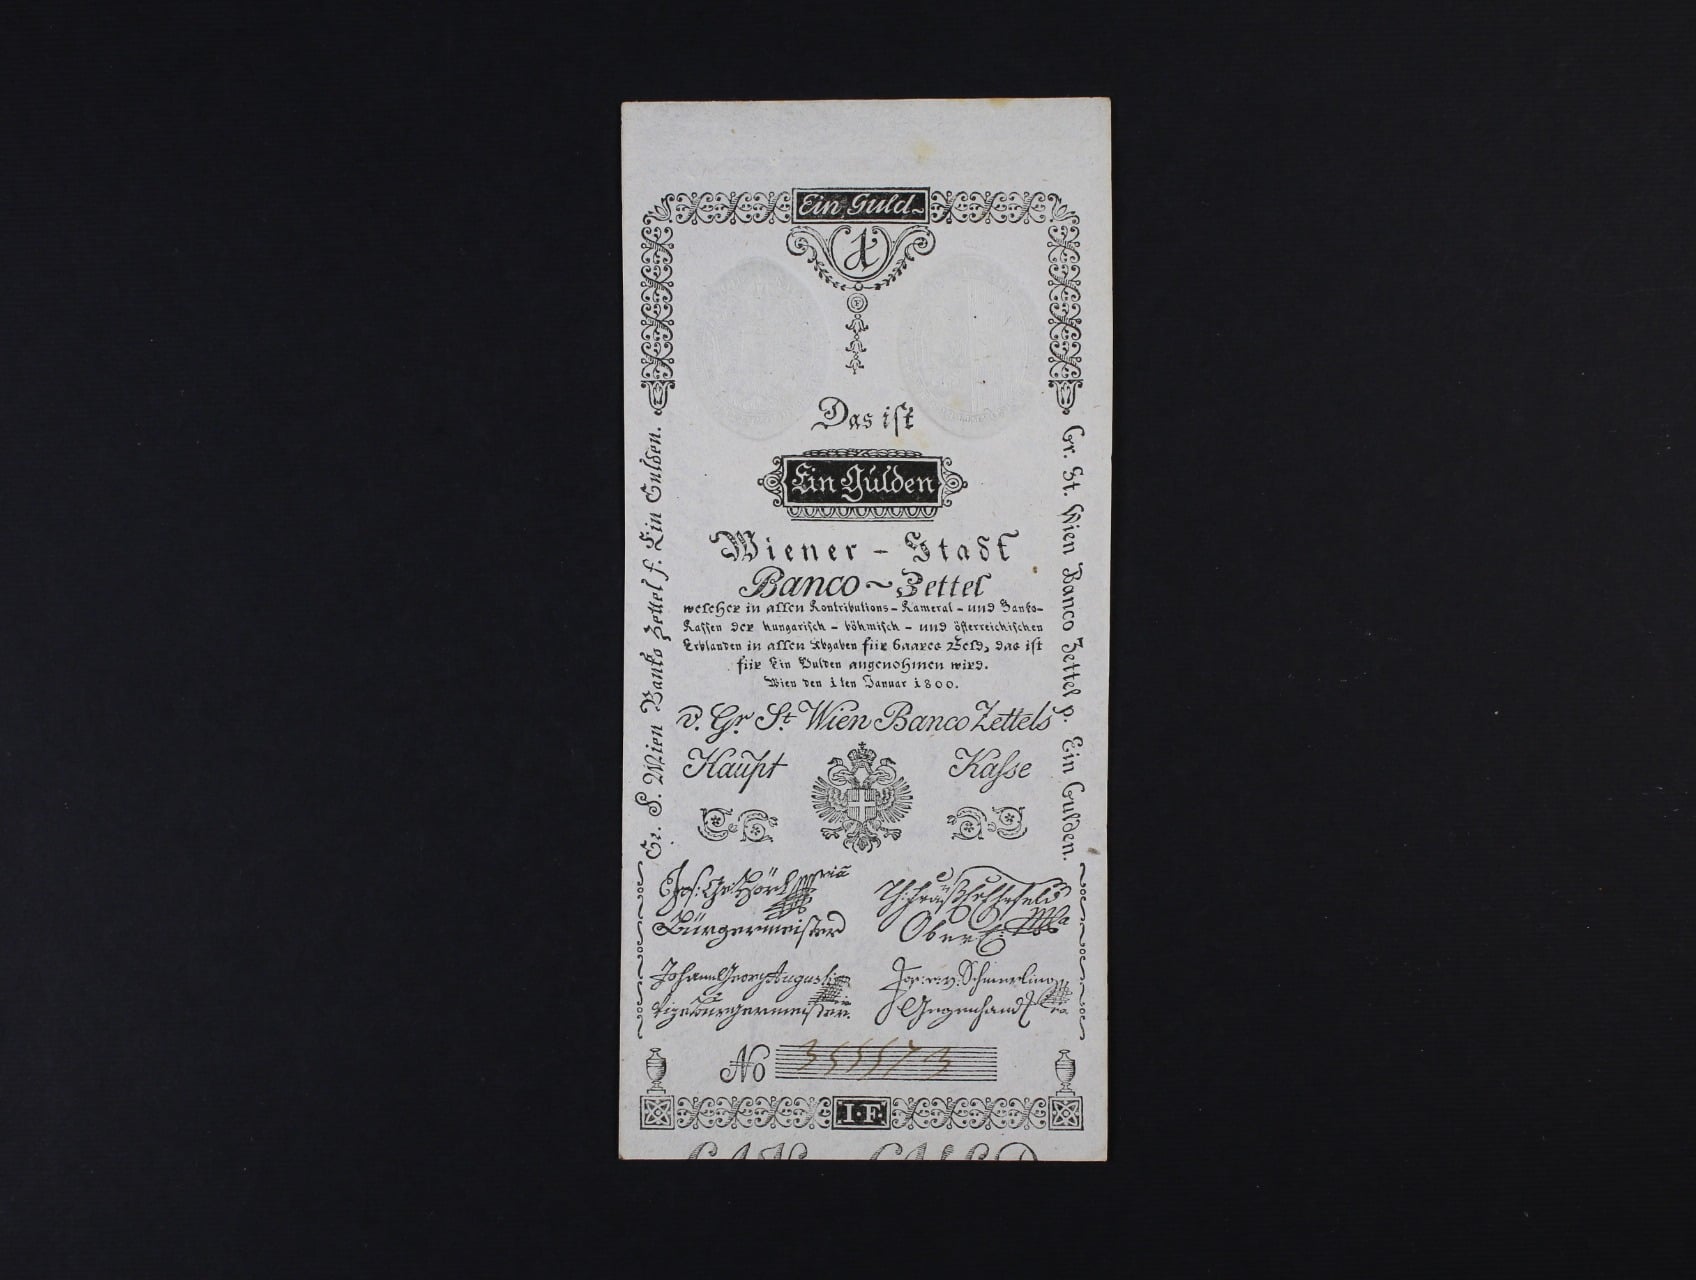 Ein Guld~
1
Das ist
Ein Gulden
Wiener - Stadt
Banco ~ Zettel
welcher in allen Kontributions - Kameral - und Banko-
Kassen der hungarisch - böhmisch - und österreichischen
Erblanden in allen Abgaben für baares Geld, das ist
für Ein Gulden angenohmen wird.
Wien den 1ten Januar 1800.
v. Gr. St. Wien Banco Zettels
Haupt Kasse
Gr. S. Wien Banko Zettel f. Ein Gulden.
Gr. St. Wien Banco Zettel p. Ein Gulden.
Bürgermeister
Johann Georg Augusti
Vizebürgermeister.
v. Schmerling
Gegenhand
No 355573
I·F